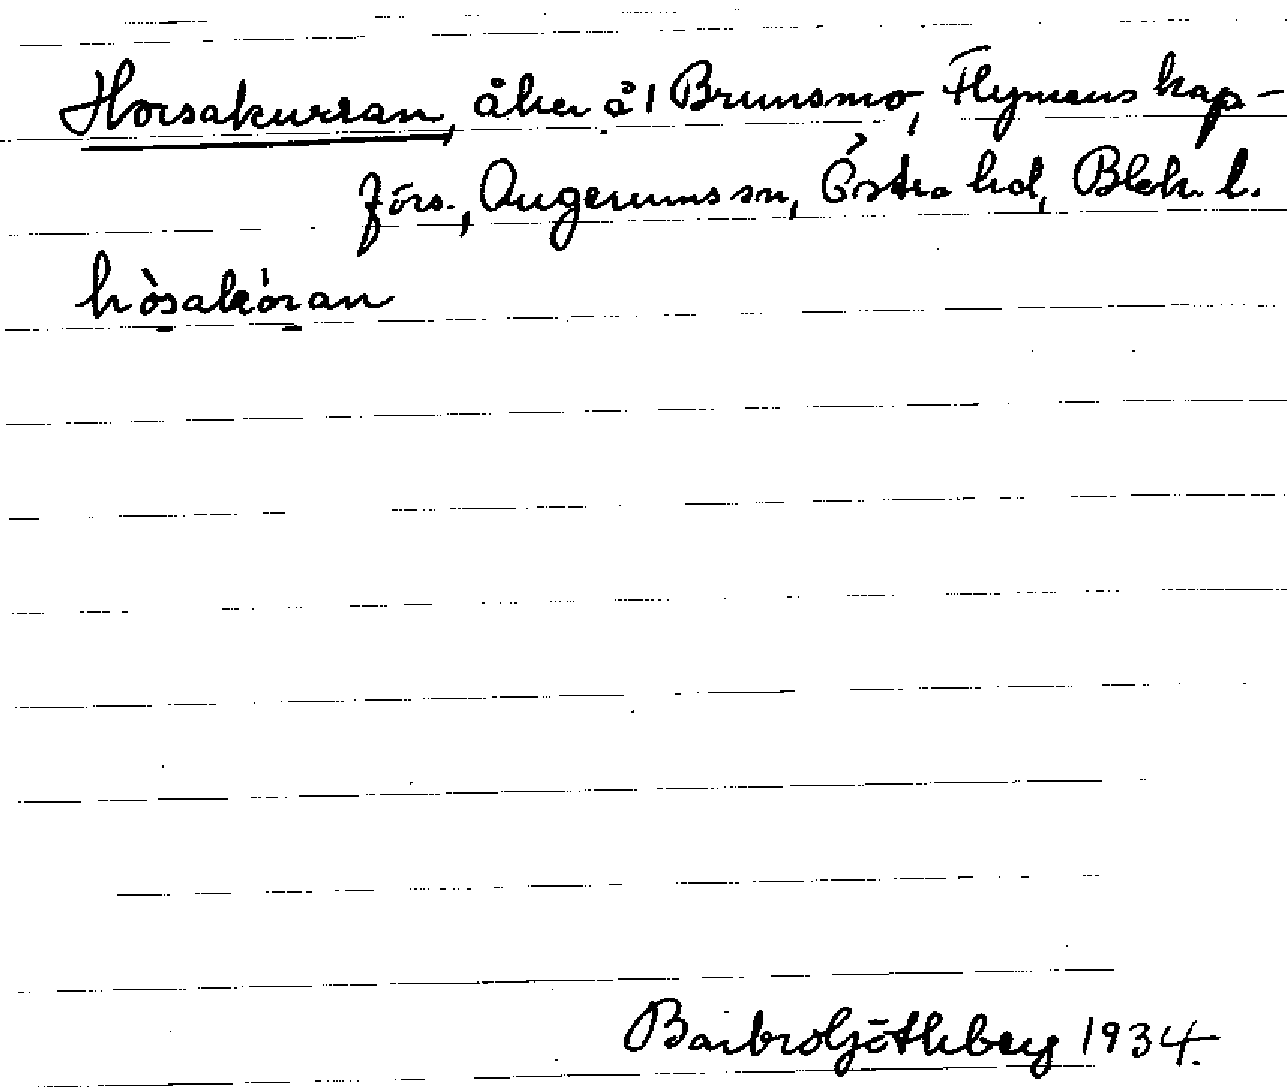 Horsakurran, åker å 1 Brunsmo, Flymens kap-
förs., Augerums sn, Östra hd, Blek. l.
hòsakóran
Barbro Götheberg 1934.